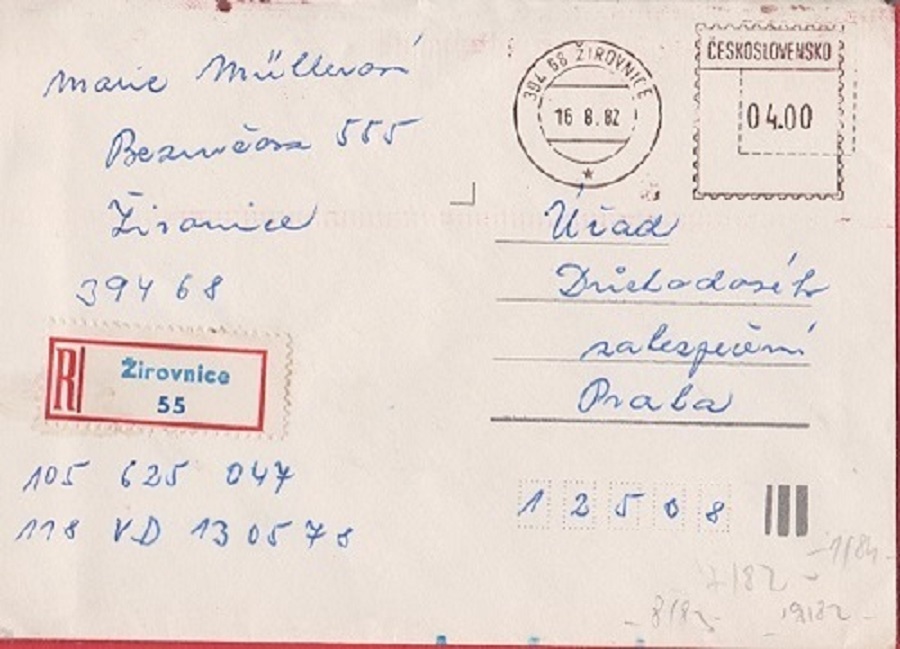 Marie Müllerová
Bezručova 555
Žirovnice
394 68
394 68 ŽIROVNICE
16 8. 82
ČESKOSLOVENSKO
04.00
Úřad
Důchodového
zabezpečení
Praha
R
Žirovnice
55
105 625 047
118 VD 13 05 78
12508
-1/84-
7/82 -
- 8/82 -
- 9/82 -